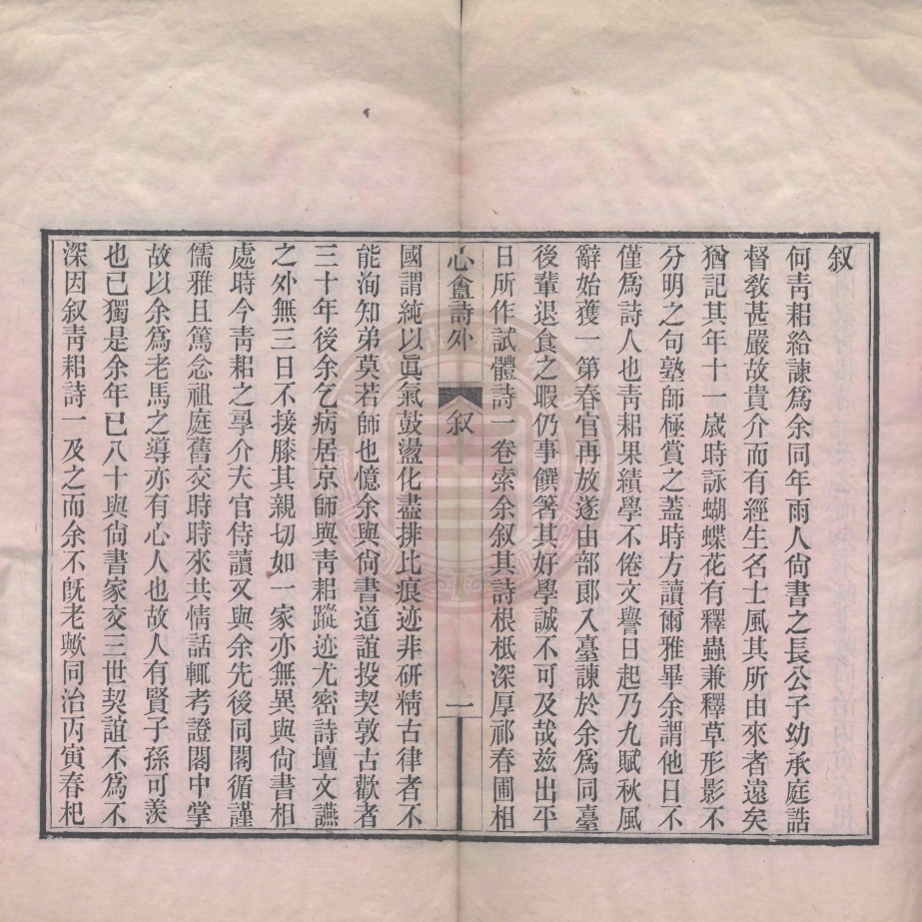 叙
何靑耜給諫爲余同年雨人尙書之長公子幼承庭誥
督敎甚嚴故貴介而有經生名士風其所由來者遠矣
猶記其年十一歲時詠蝴蝶花有釋蟲兼釋草形影不
分明之句塾師極賞之蓋時方讀爾雅畢余謂他日不
僅爲詩人也靑耜果績學不倦文譽日起乃九賦秋風
辭始獲一第春官再放遂由部郞入臺諫於余爲同臺
後輩退食之暇仍事饌箸其好學誠不可及哉兹出平
日所作試體詩一卷索余叙其詩根柢深厚祁春圃相
心盦詩外 叙 一
國謂純以眞氣鼓盪化盡排比痕迹非研精古律者不
能洵知弟莫若師也憶余與尙書道誼投契敦古歡者
三十年後余乞病居京師與靑耜蹤迹尤密詩壇文讌
之外無三日不接膝其親切如一家亦無異與尙書相
處時今靑耜之
介夫官侍讀又與余先後同閣循謹
儒雅且篤念祖庭舊交時時來共情話輒考證閣中掌
故以余爲老馬之導亦有心人也故人有賢子孫可羨
也已獨是余年已八十與尙書家交三世契誼不爲不
深因叙靑耜詩一及之而余不旣老歟同治丙寅春杞